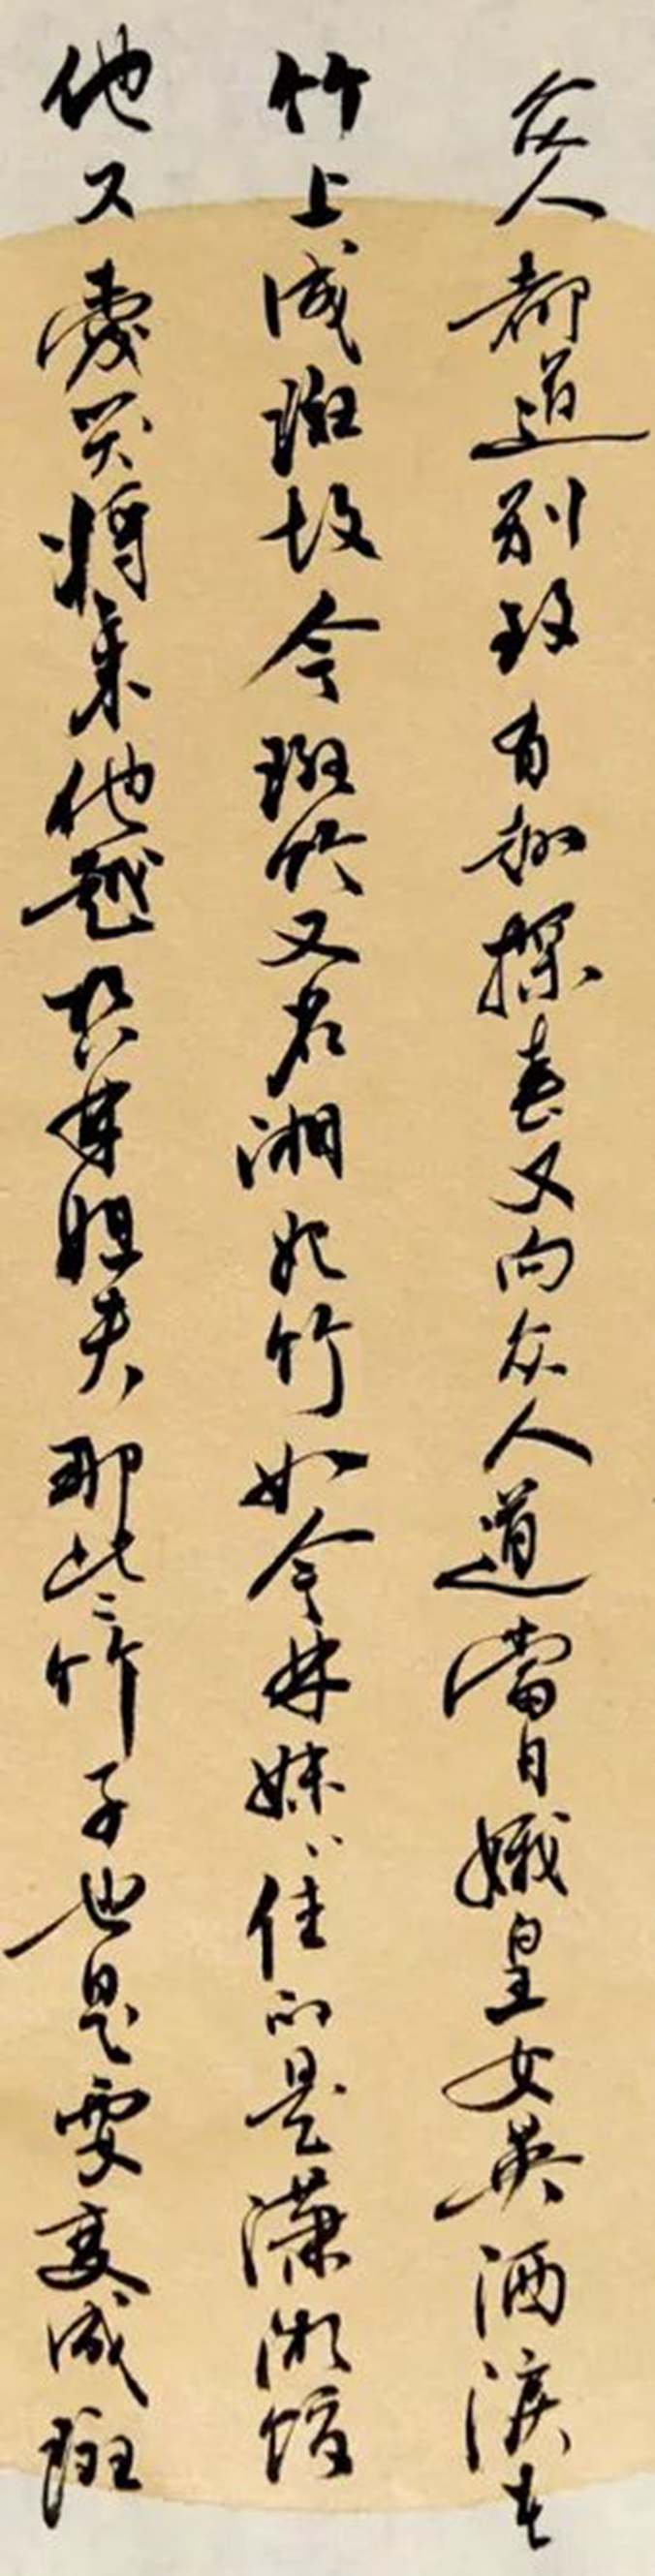 众人都道别致有趣探春又向众人道當日娥皇女英洒淚在
竹上成斑故今斑竹又名湘妃竹如今林妹妹住的是潇湘馆
他又愛哭将来他想林姐夫那些竹子也是要变成斑